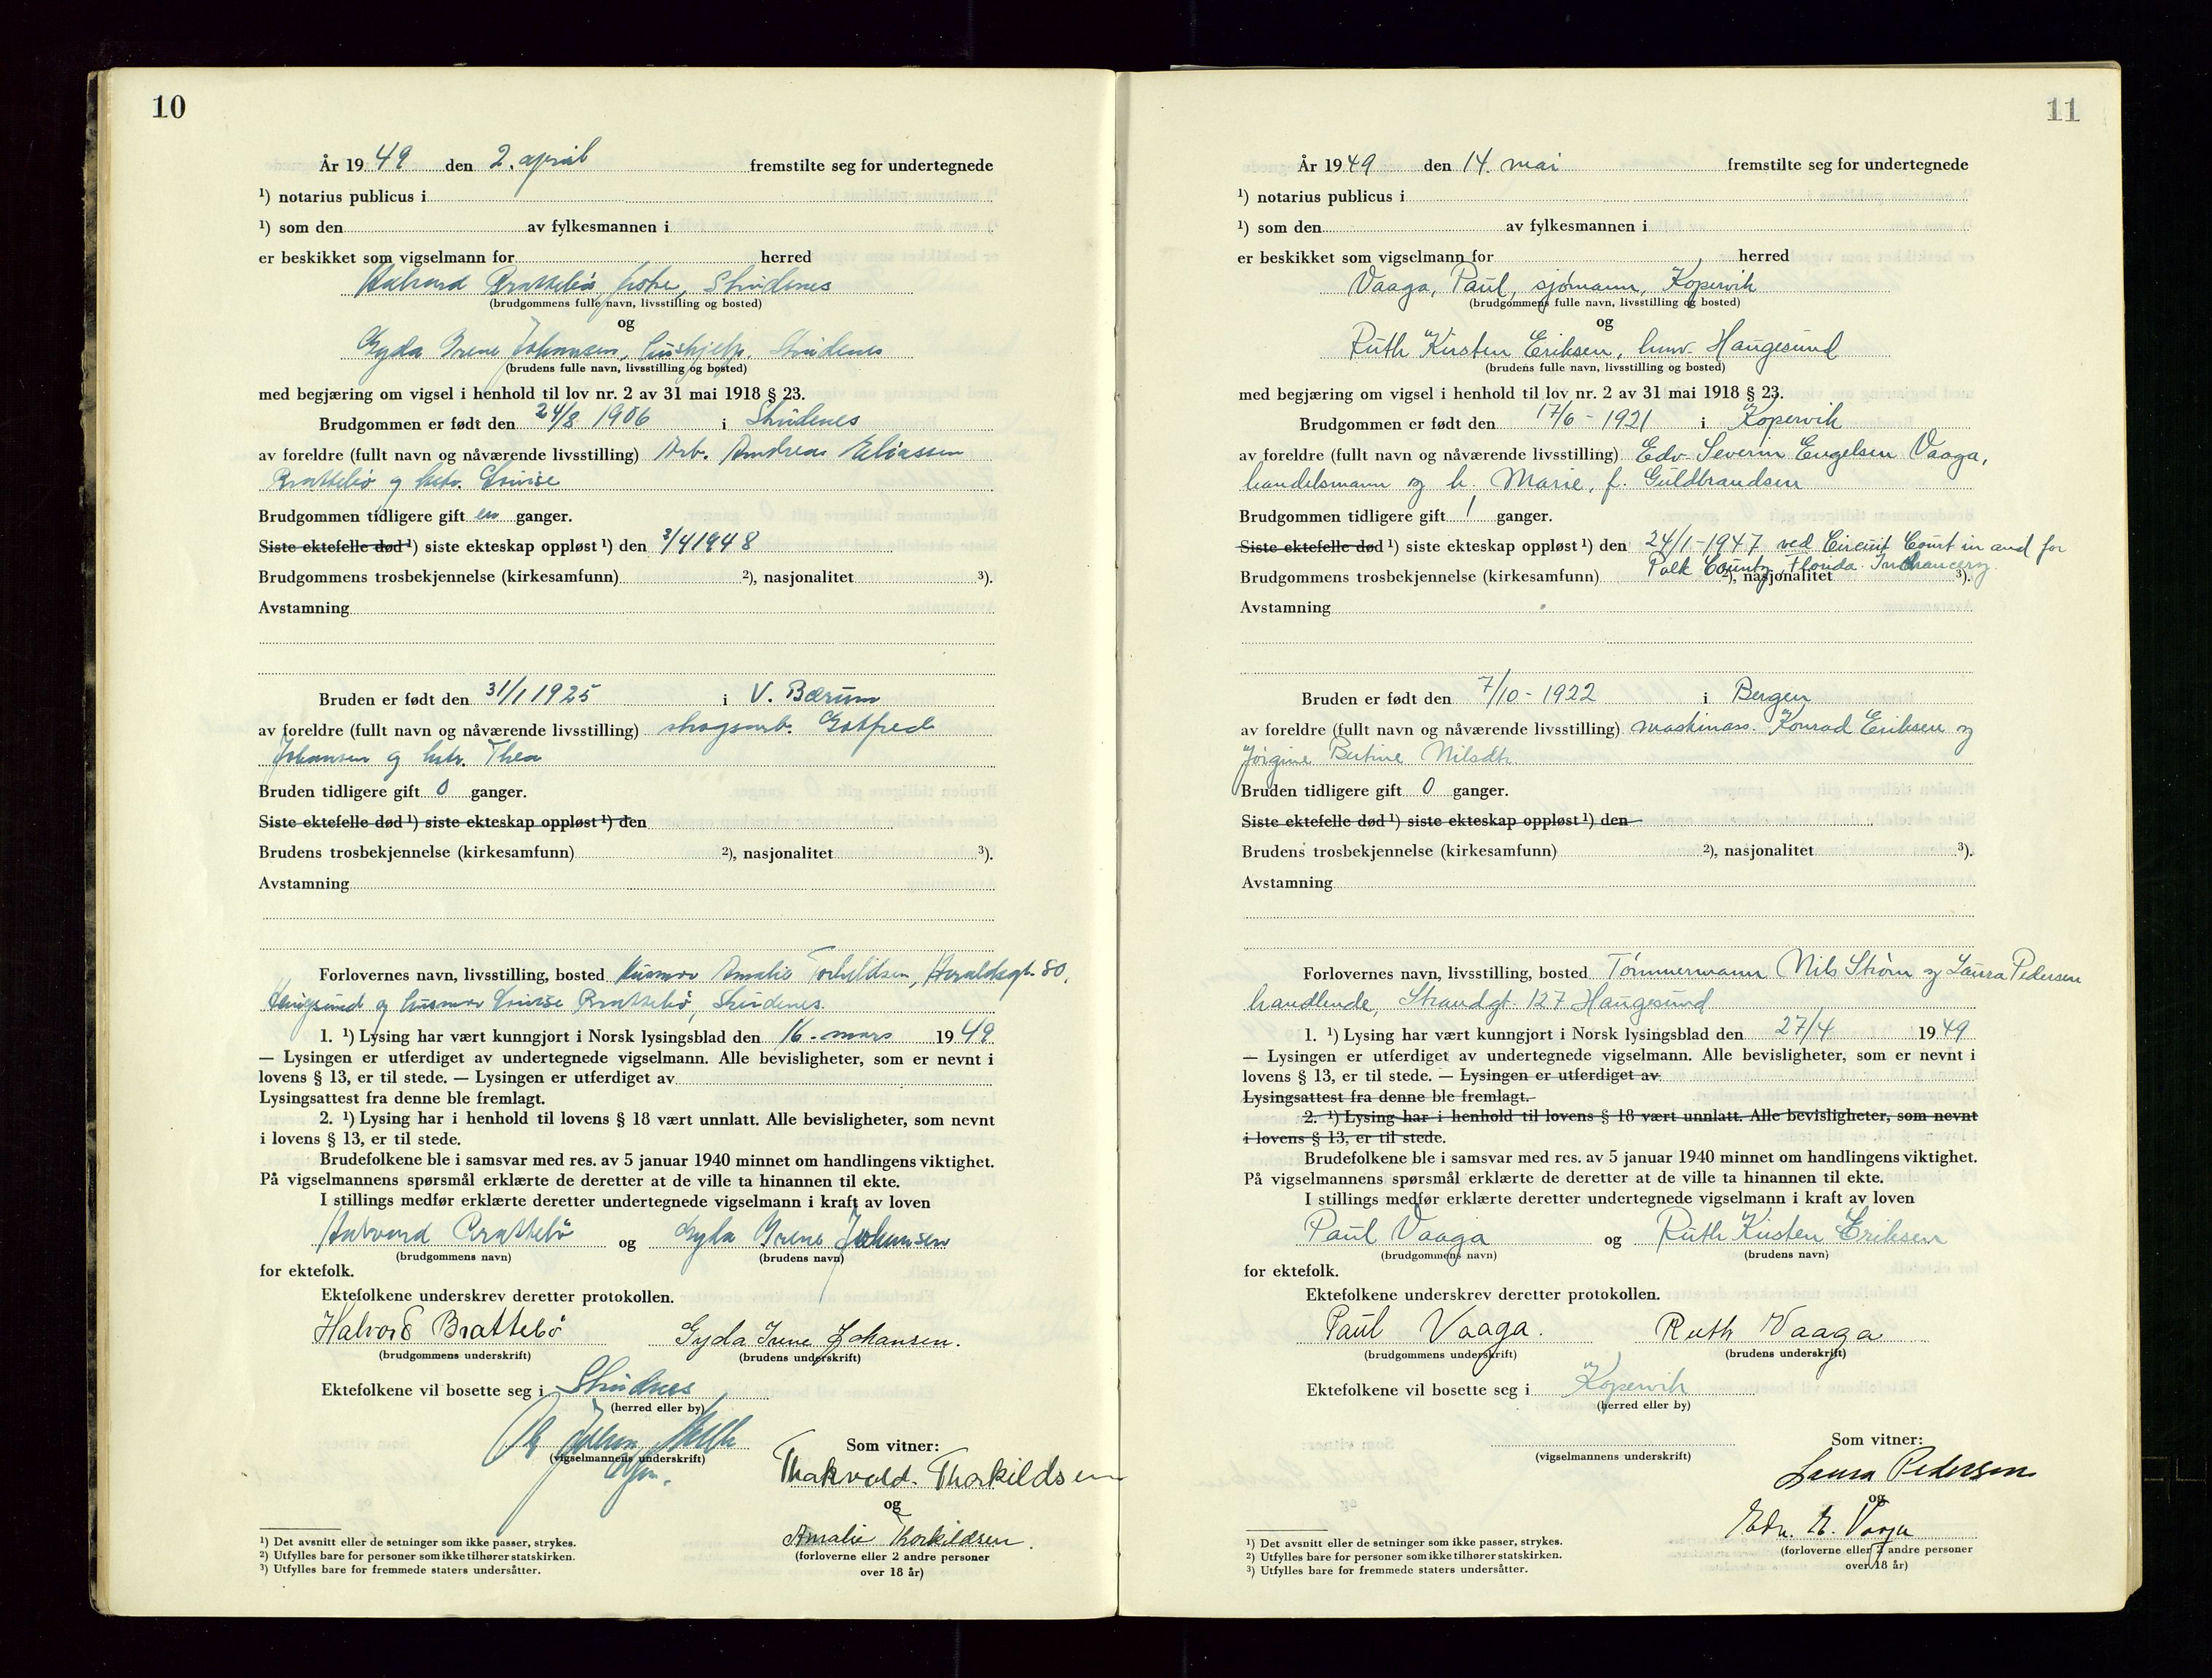 10
År 1949 den 2. april fremstilte seg for undertegnede
¹) notarius publicus i
¹) som den av fylkesmannen i
er beskikket som vigselmann for herred
Halvard Brattebö, Skudenes
(brudgommens fulle navn, livsstilling og bosted)
og
Gyda Irene Johansen, hushjelp. Skudenes
(brudens fulle navn, livsstilling og bosted)
med begjæring om vigsel i henhold til lov nr. 2 av 31 mai 1918 § 23.
Brudgommen er født den 24/8 1906 i Skudenes
av foreldre (fullt navn og nåværende livsstilling) Arb. Andreas Eliassen
Brattebö og hstr. Lovise
Brudgommen tidligere gift en ganger.
Siste ektefelle død ¹) siste ekteskap oppløst ¹) den 3/4 1948
Brudgommens trosbekjennelse (kirkesamfunn) ²), nasjonalitet ³).
Avstamning
Bruden er født den 31/1 1925 i V. Bærum
av foreldre (fullt navn og nåværende livsstilling) skogsarb. Gotfred
Johansen og hstr. Thea
Bruden tidligere gift 0 ganger.
Siste ektefelle død ¹) siste ekteskap oppløst ¹) den
Brudens trosbekjennelse (kirkesamfunn) ²), nasjonalitet ³).
Avstamning
Forlovernes navn, livsstilling, bosted Husmor Amalie Torkildsen, Haraldsgt. 80,
Haugesund og husmor Lovise Brattebö, Skudenes.
1. ¹) Lysing har vært kunngjort i Norsk lysingsblad den 16. mars 1949
— Lysingen er utferdiget av undertegnede vigselmann. Alle bevisligheter, som er nevnt i
lovens § 13, er til stede. — Lysingen er utferdiget av
Lysingsattest fra denne ble fremlagt.
2. ¹) Lysing har i henhold til lovens § 18 vært unnlatt. Alle bevisligheter, som nevnt
i lovens § 13, er til stede.
Brudefolkene ble i samsvar med res. av 5 januar 1940 minnet om handlingens viktighet.
På vigselmannens spørsmål erklærte de deretter at de ville ta hinannen til ekte.
I stillings medfør erklærte deretter undertegnede vigselmann i kraft av loven
Halvard Brattebö og Gyda Irene Johansen
(brudgommens navn) (brudens navn)
for ektefolk.
Ektefolkene underskrev deretter protokollen.
Halvard Brattebö Gyda Irene Johansen.
(brudgommens underskrift) (brudens underskrift)
Ektefolkene vil bosette seg i Skudenes
(herred eller by)
(vigselmannens underskrift)
Som vitner:
Thorvald. Thorkildsen
og
Amalie Thorkildsen.
(forloverne eller 2 andre personer
over 18 år)
¹) Det avsnitt eller de setninger som ikke passer, strykes.
²) Utfylles bare for personer som ikke tilhører statskirken.
³) Utfylles bare for fremmede staters undersåtter.
11
År 1949 den 14. mai fremstilte seg for undertegnede
¹) notarius publicus i
¹) som den av fylkesmannen i
er beskikket som vigselmann for herred
Vaaga, Paul, sjømann, Kopervik
(brudgommens fulle navn, livsstilling og bosted)
og
Ruth Kirsten Eriksen, husv. Haugesund
(brudens fulle navn, livsstilling og bosted)
med begjæring om vigsel i henhold til lov nr. 2 av 31 mai 1918 § 23.
Brudgommen er født den 17/6 - 1921 i Kopervik
av foreldre (fullt navn og nåværende livsstilling) Edv. Severin Engelsen Vaaga,
handelsmann og h. Marie, f. Guldbrandsen
Brudgommen tidligere gift 1 ganger.
Siste ektefelle død ¹) siste ekteskap oppløst ¹) den 24/1 - 1947 ved Circuit Court in and for
Polk County, Florida. In Chancery
Brudgommens trosbekjennelse (kirkesamfunn) ²), nasjonalitet ³).
Avstamning
Bruden er født den 7/10 - 1922 i Bergen
av foreldre (fullt navn og nåværende livsstilling) maskinass. Konrad Eriksen og
Jørgine Bertine Nilsdtr.
Bruden tidligere gift 0 ganger.
Siste ektefelle død ¹) siste ekteskap oppløst ¹) den
Brudens trosbekjennelse (kirkesamfunn) ²), nasjonalitet ³).
Avstamning
Forlovernes navn, livsstilling, bosted Tømmermann Nils Strøm og Laura Pedersen
handlende, Strandgt. 127 Haugesund
1. ¹) Lysing har vært kunngjort i Norsk lysingsblad den 27/4 1949
— Lysingen er utferdiget av undertegnede vigselmann. Alle bevisligheter, som er nevnt i
lovens § 13, er til stede. — Lysingen er utferdiget av
Lysingsattest fra denne ble fremlagt.
2. ¹) Lysing har i henhold til lovens § 18 vært unnlatt. Alle bevisligheter, som nevnt
i lovens § 13, er til stede.
Brudefolkene ble i samsvar med res. av 5 januar 1940 minnet om handlingens viktighet.
På vigselmannens spørsmål erklærte de deretter at de ville ta hinannen til ekte.
I stillings medfør erklærte deretter undertegnede vigselmann i kraft av loven
Paul Vaaga og Ruth Kirsten Eriksen
(brudgommens navn) (brudens navn)
for ektefolk.
Ektefolkene underskrev deretter protokollen.
Paul Vaaga. Ruth Vaaga
(brudgommens underskrift) (brudens underskrift)
Ektefolkene vil bosette seg i Kopervik
(herred eller by)
(vigselmannens underskrift)
Som vitner:
Laura Pedersen
og
Edv. E. Vaaga
(forloverne eller 2 andre personer
over 18 år)
¹) Det avsnitt eller de setninger som ikke passer, strykes.
²) Utfylles bare for personer som ikke tilhører statskirken.
³) Utfylles bare for fremmede staters undersåtter.